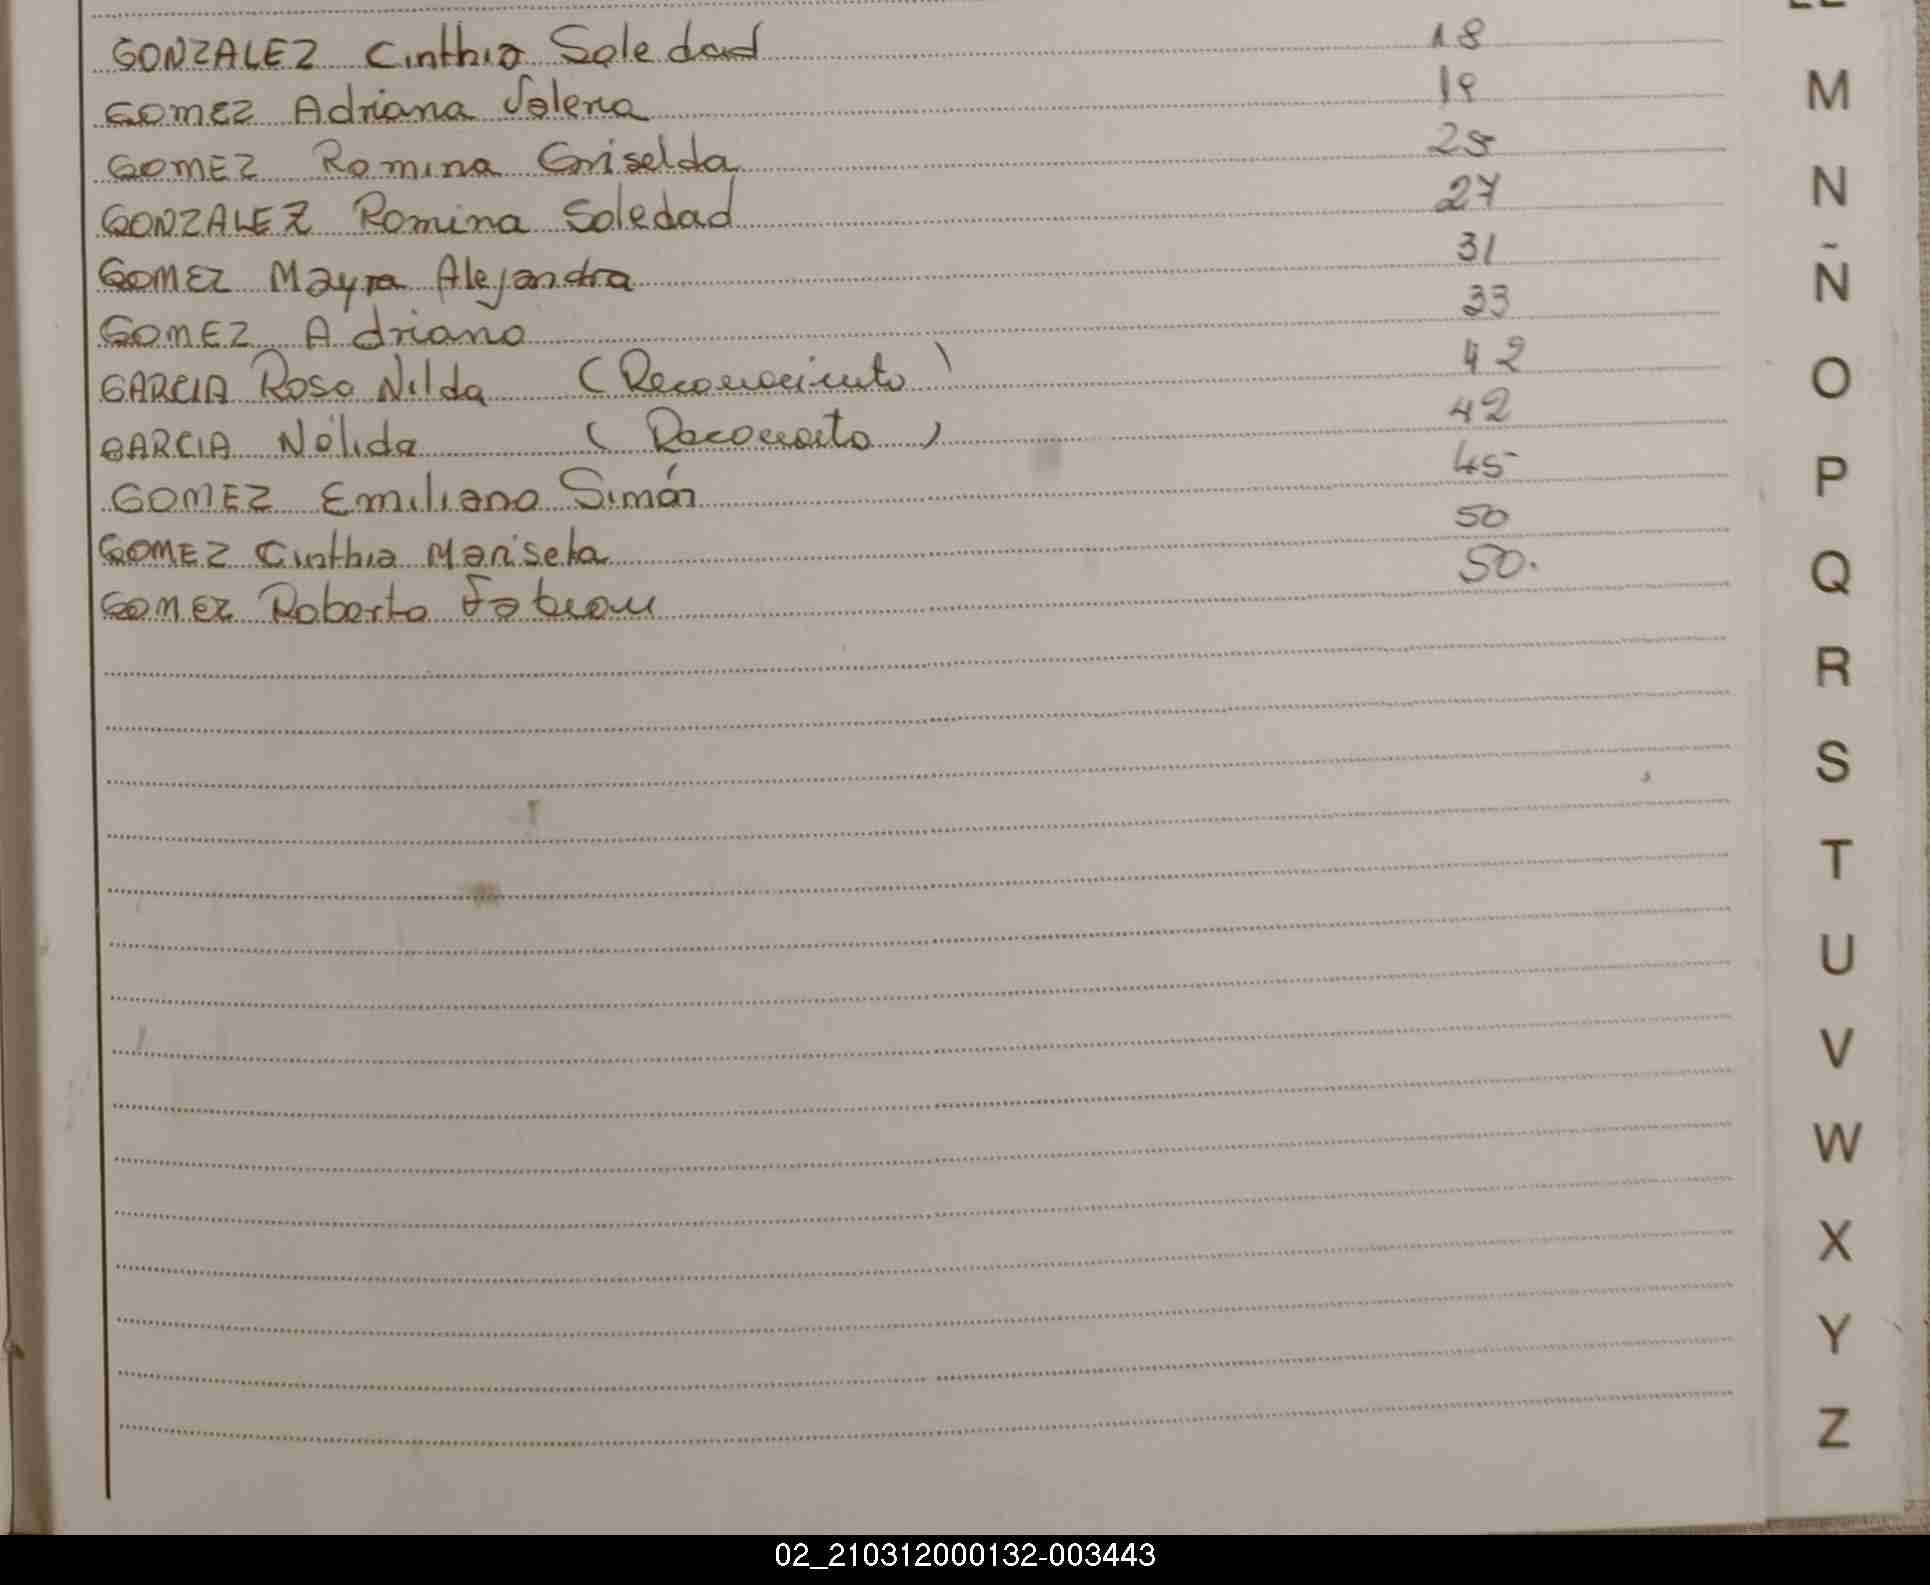 GONZALEZ Cinthia Soledad 18
GOMEZ Adriana Valeria 19
GOMEZ Romina Griselda 25
GONZALEZ Romina Soledad 27
GOMEZ Mayra Alejandra 31
GOMEZ Adriano 33
GARCIA Rosa Nilda (Reconocimiento) 42
GARCIA Nélida (Reconocito) 42
GOMEZ Emiliano Simón 45
GOMEZ Cinthia Marisela 50
GOMEZ Roberto Fabian 50.
M
N
Ñ
O
P
Q
R
S
T
U
V
W
X
Y
Z
02_210312000132-003443